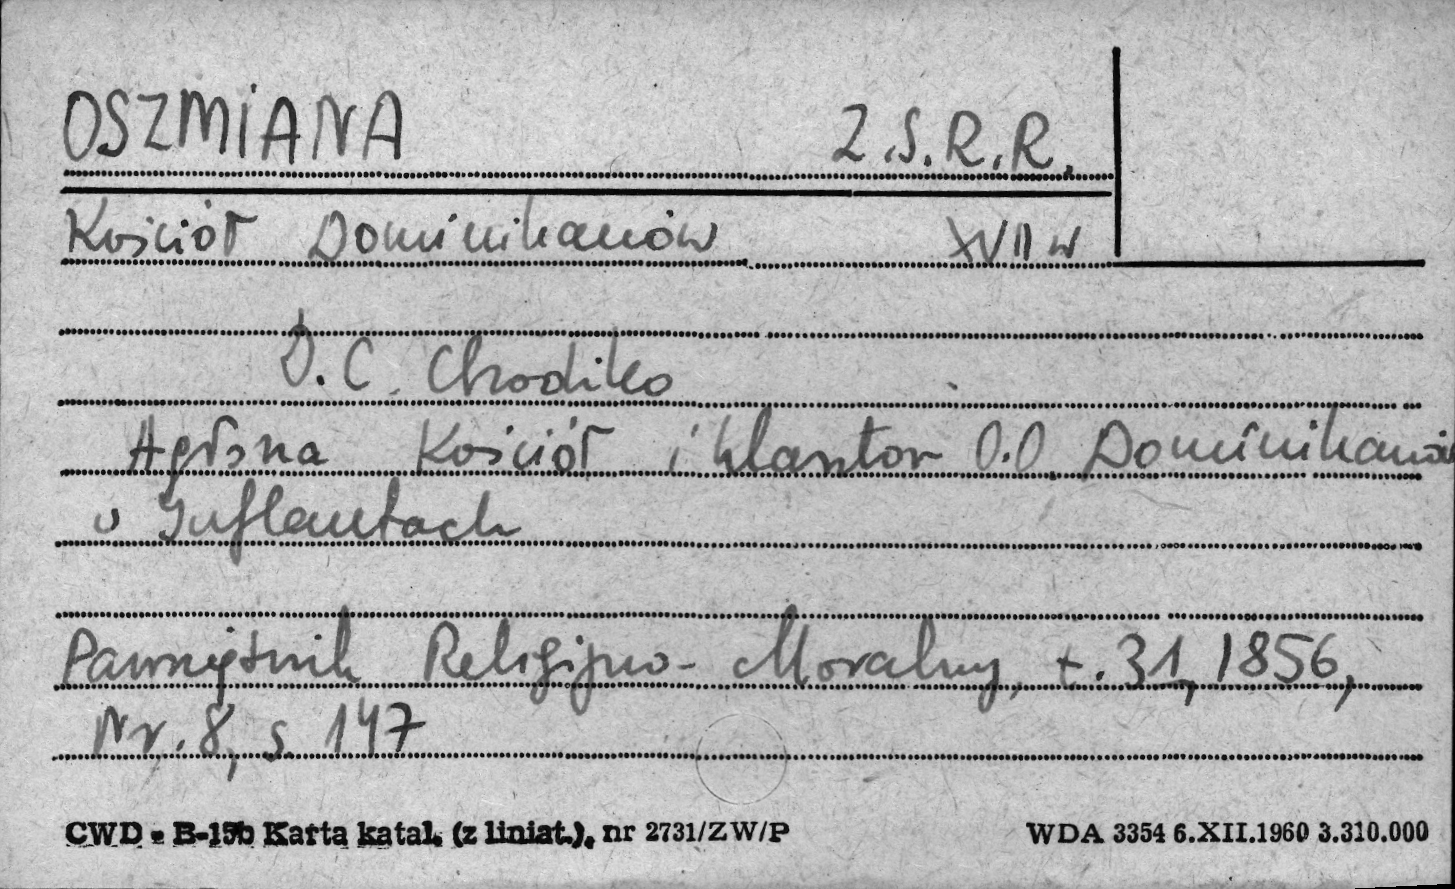 OSZMIANA Z.S.R.R.
Kościół Dominikanów XVII w
D.C. Chodźko
Agłona Kościół i klasztor O.O. Dominikanów
w Inflantach
Pamiętnik Religijno-Moralny, t. 31, 1856,
Nr. 8, s 147
CWD - B-15b Karta katal. (z liniat.), nr 2731/ZW/P WDA 3354 6.XII.1960 3.310.000